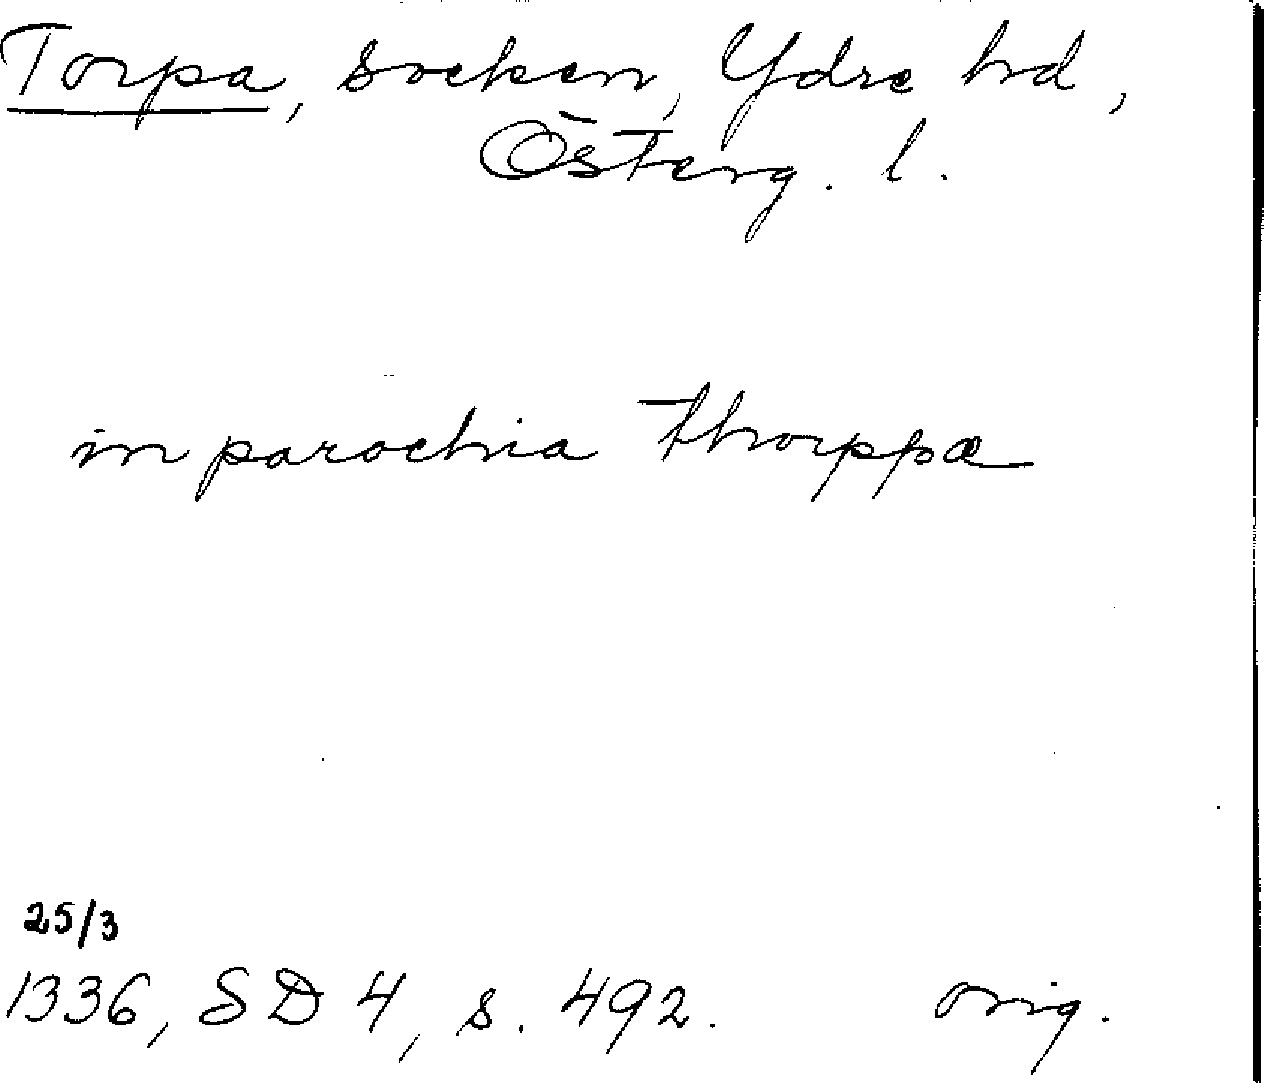 Torpa, socken, Ydre hd,
Österg. l.
in parochia thorppæ
25/3
1336, SD 4, s. 492. orig.